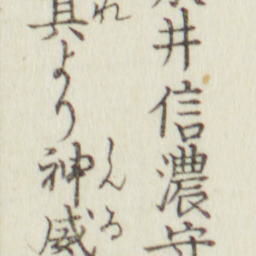 井信濃守
れ
其より神威
しんゐ